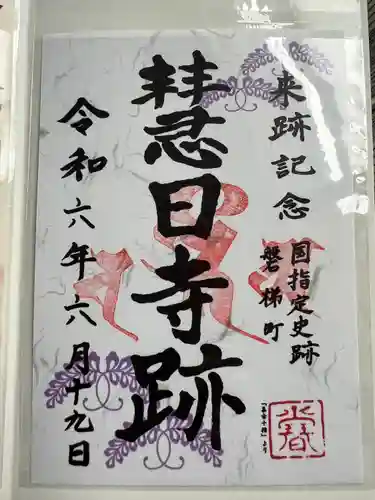 来跡記念
国指定史跡
磐梯町
慧日寺跡
令和六年六月十九日